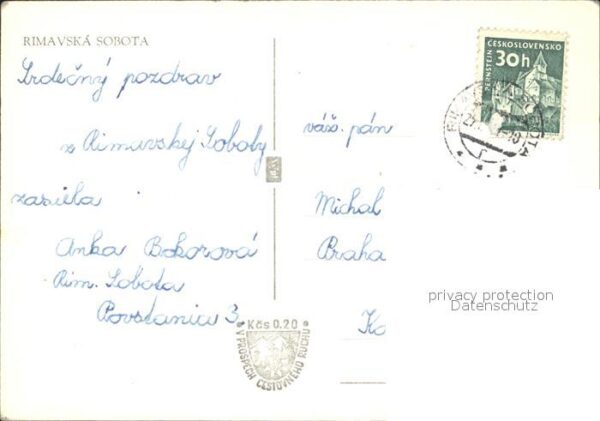 RIMAVSKÁ SOBOTA
Srdečný pozdrav
z Rimavskej Soboty
zasiela
Anka Bokorová
Rim. Sobota
Povstania 3
Kčs 0.20
V PROSPECH CESTOVNÉHO RUCHU
ČESKOSLOVENSKO
PERNŠTEJN
30h
váž. pán
Michal
Praha
Ko
privacy protection
Datenschutz